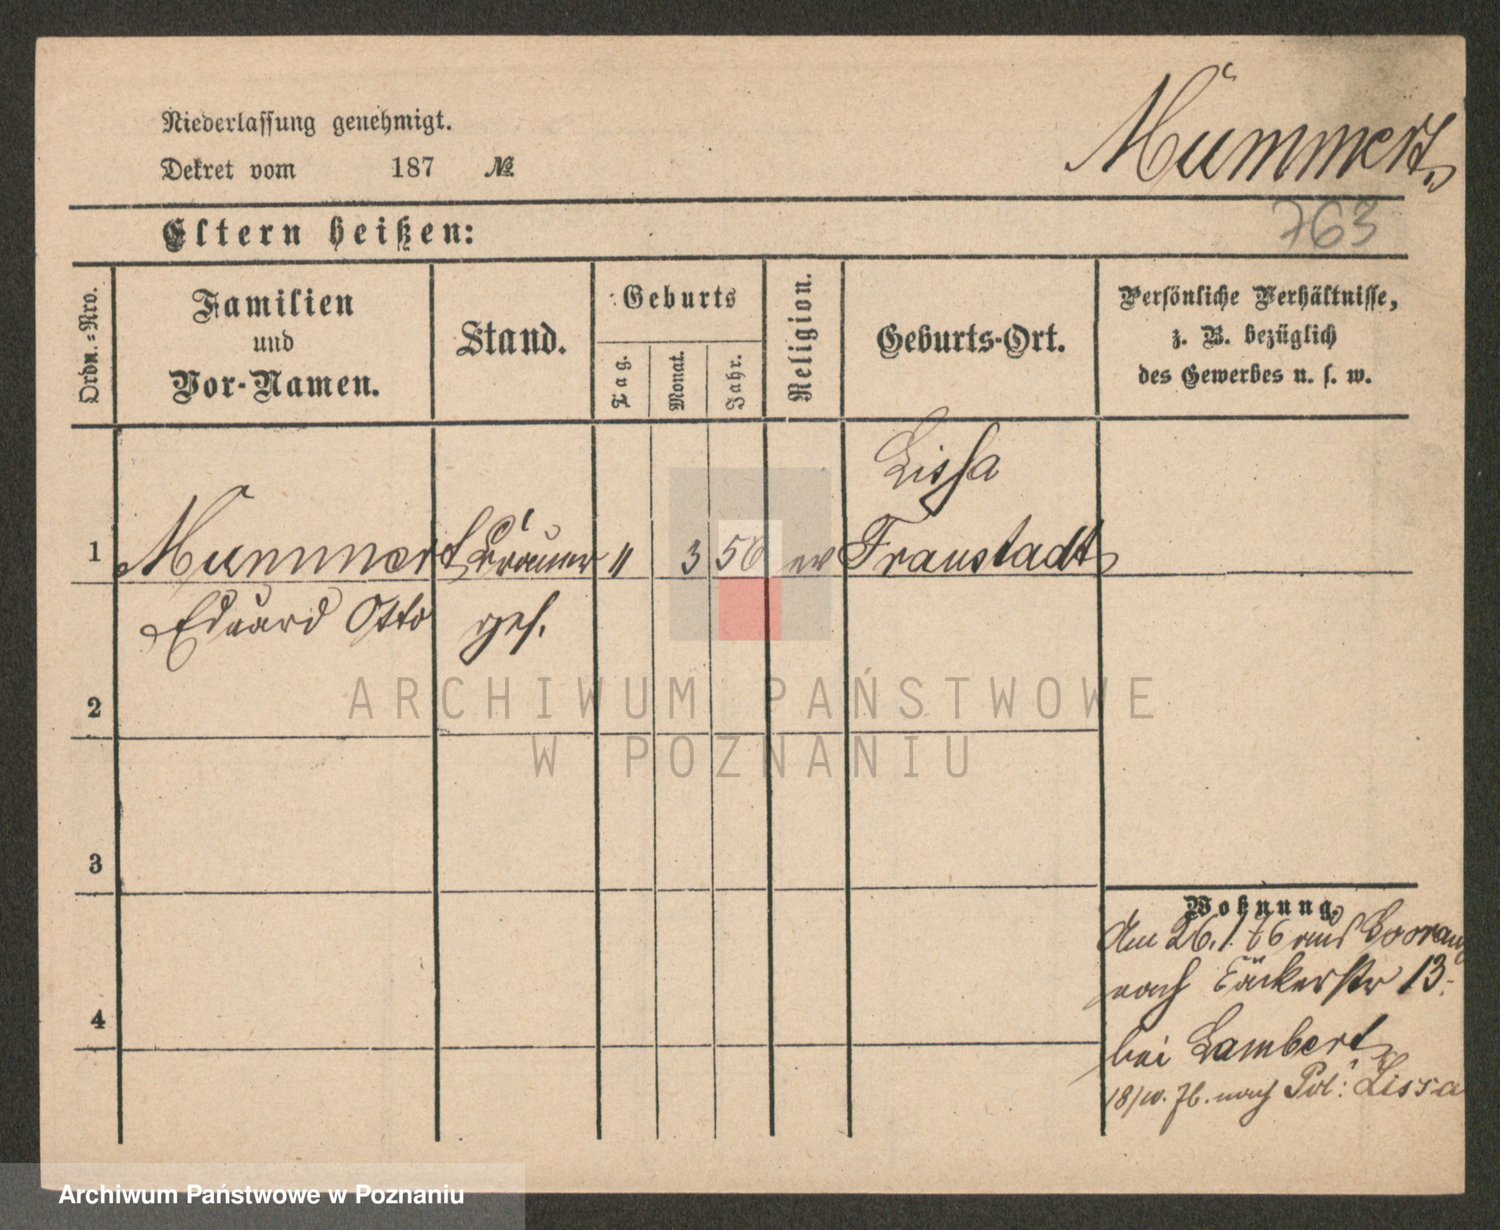 Mummert.
Niederlassung genehmigt.
Dekret vom 187 №
763
Eltern heißen:
Ordn.=Nro.
Familien
und
Vor-Namen.
Stand.
Geburts
Tag.
Monat.
Jahr.
Religion.
Geburts-Ort.
Persönliche Verhältnisse,
z. B. bezüglich
des Gewerbes u. s. w.
Lissa
1 Mummert Brauer " 3 56 ev Fraustadt
Eduard Otto ges.
2
ARCHIWUM PAŃSTWOWE
W POZNANIU
3
Wohnung.
Am 26.1.76 aus
nach Bäckerstr 13.
4
bei Lambert
nach Pol: Lissa
Archiwum Państwowe w Poznaniu